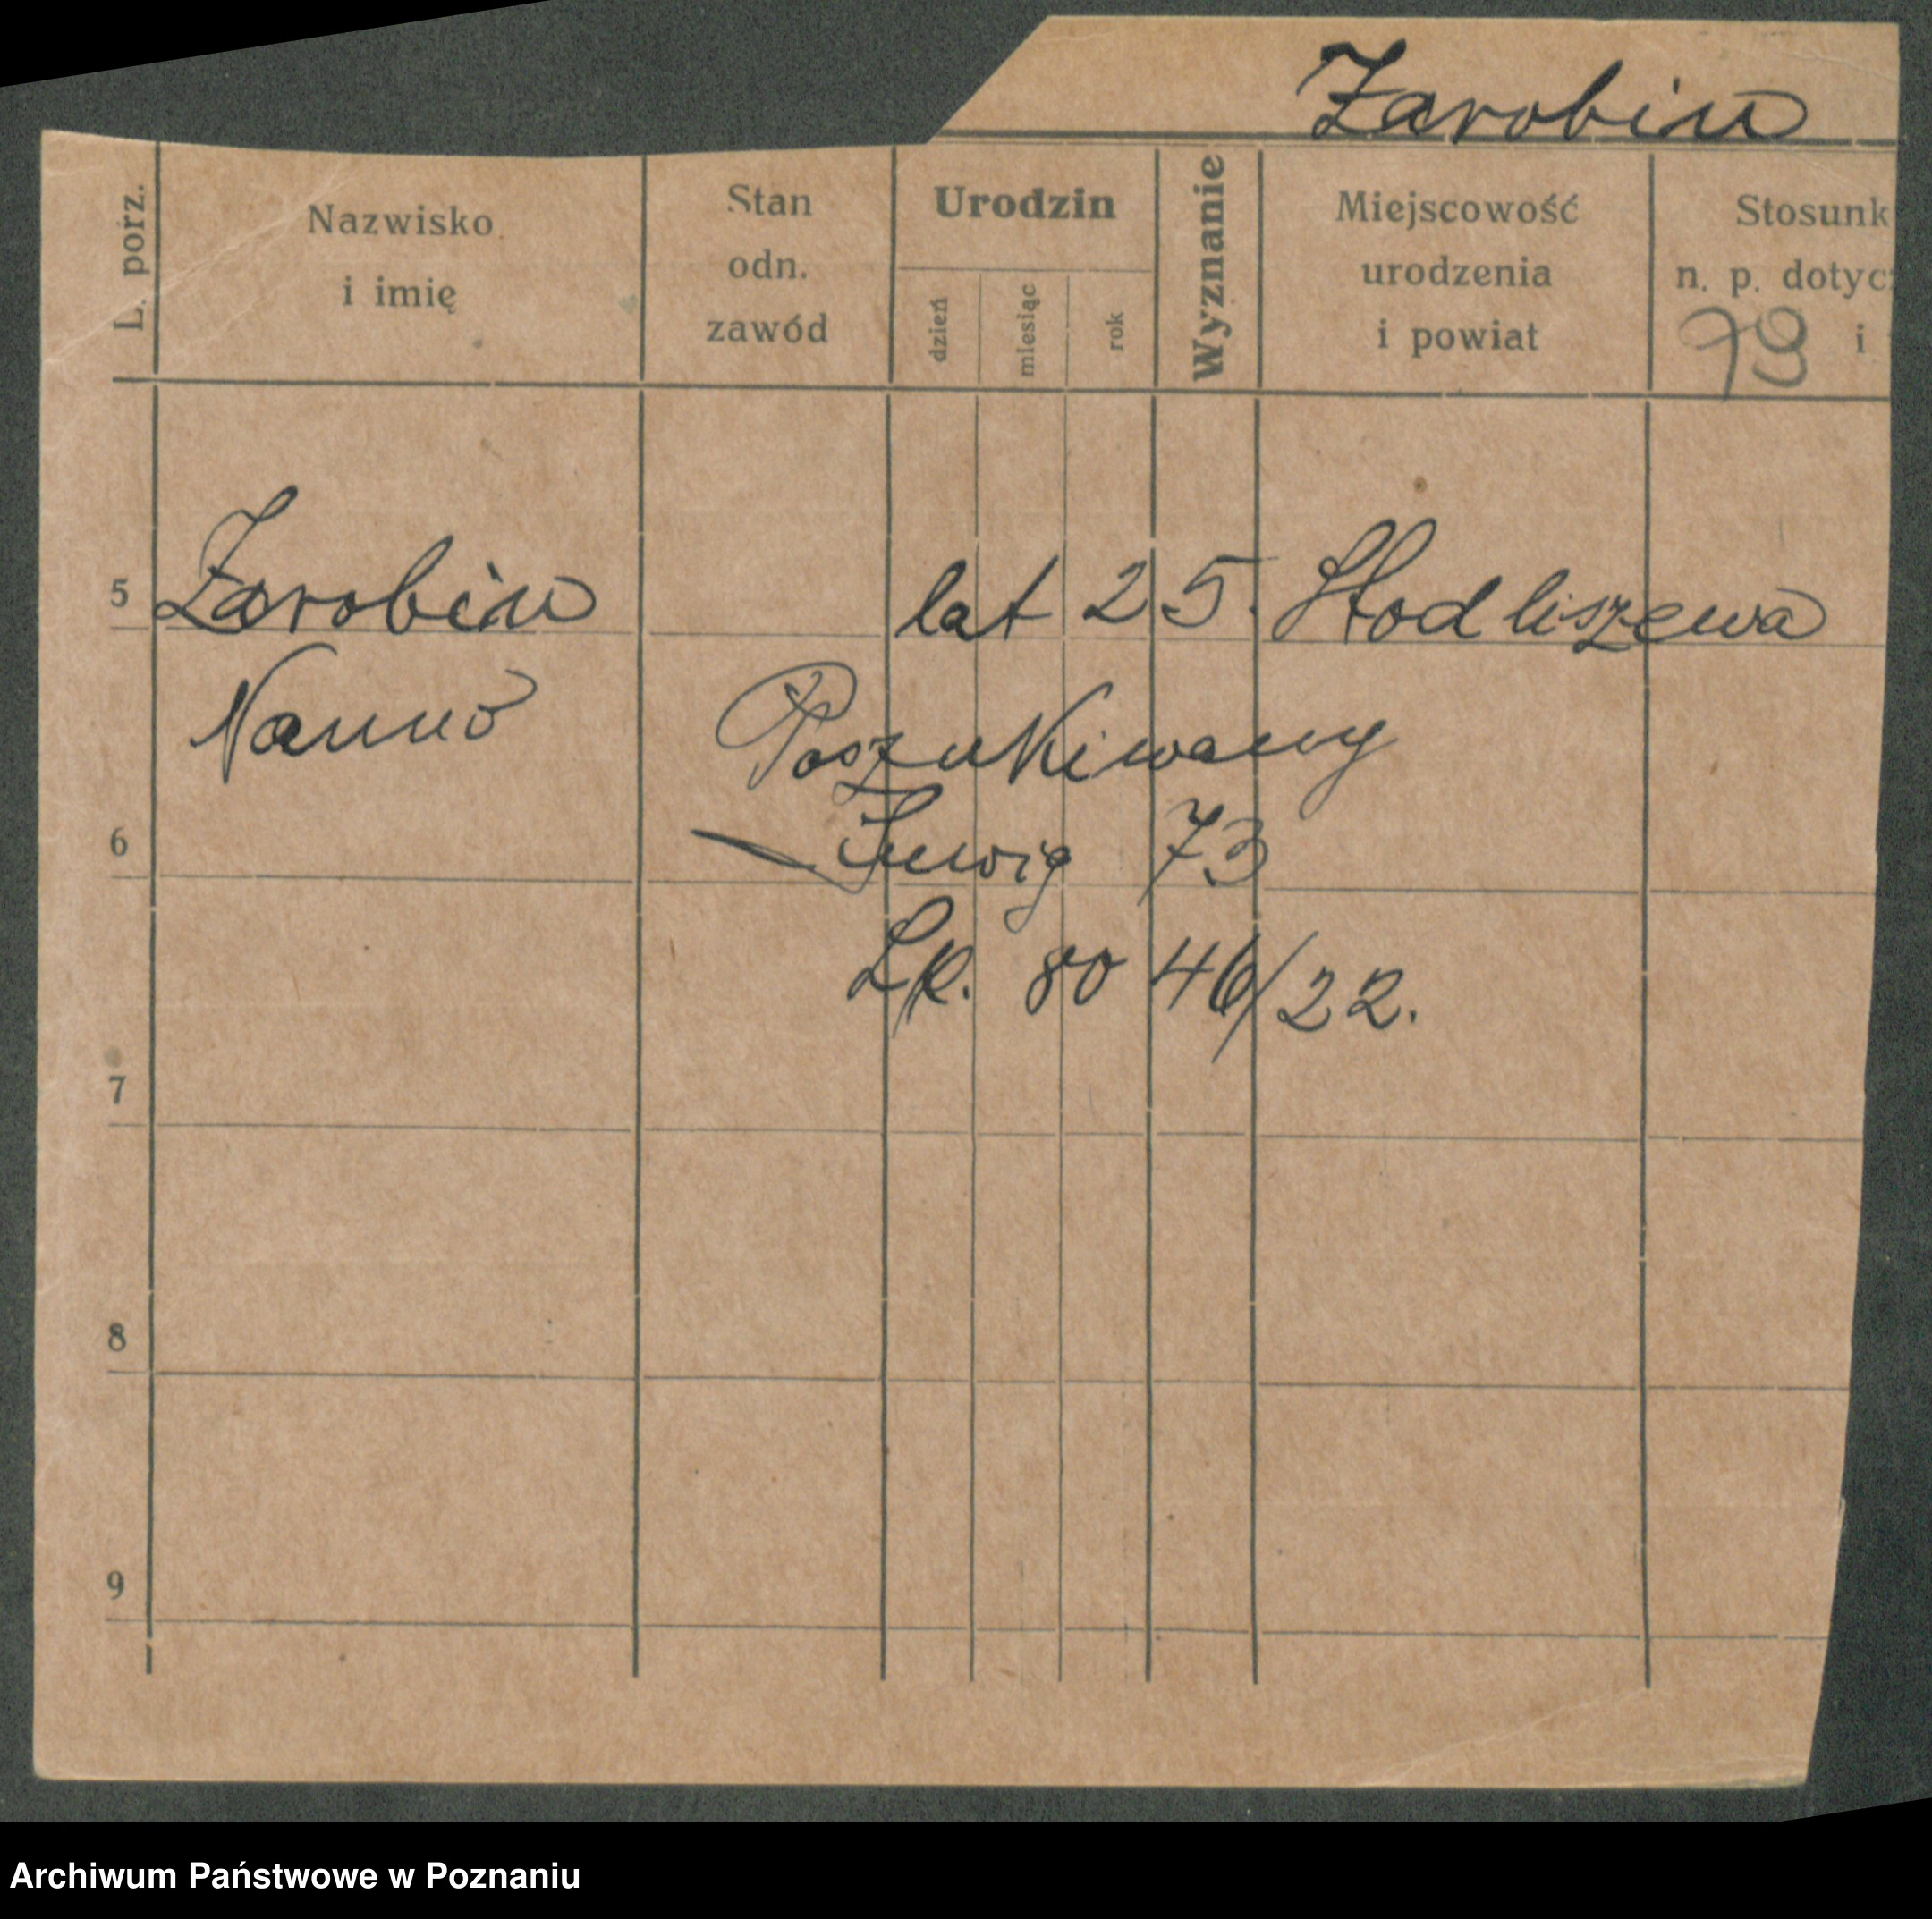 Zarobin
L. porz.
Nazwisko
i imię
Stan
odn.
zawód
Urodzin
dzień
miesiąc
rok
Wyznanie
Miejscowość
urodzenia
i powiat
Stosunk
n. p. dotycz
i
78
5 Zarobin lat 25. Hodliszewa
Nanno Poszukiwany
6 73
L.R. 80 46/22.
7
8
9
Archiwum Państwowe w Poznaniu